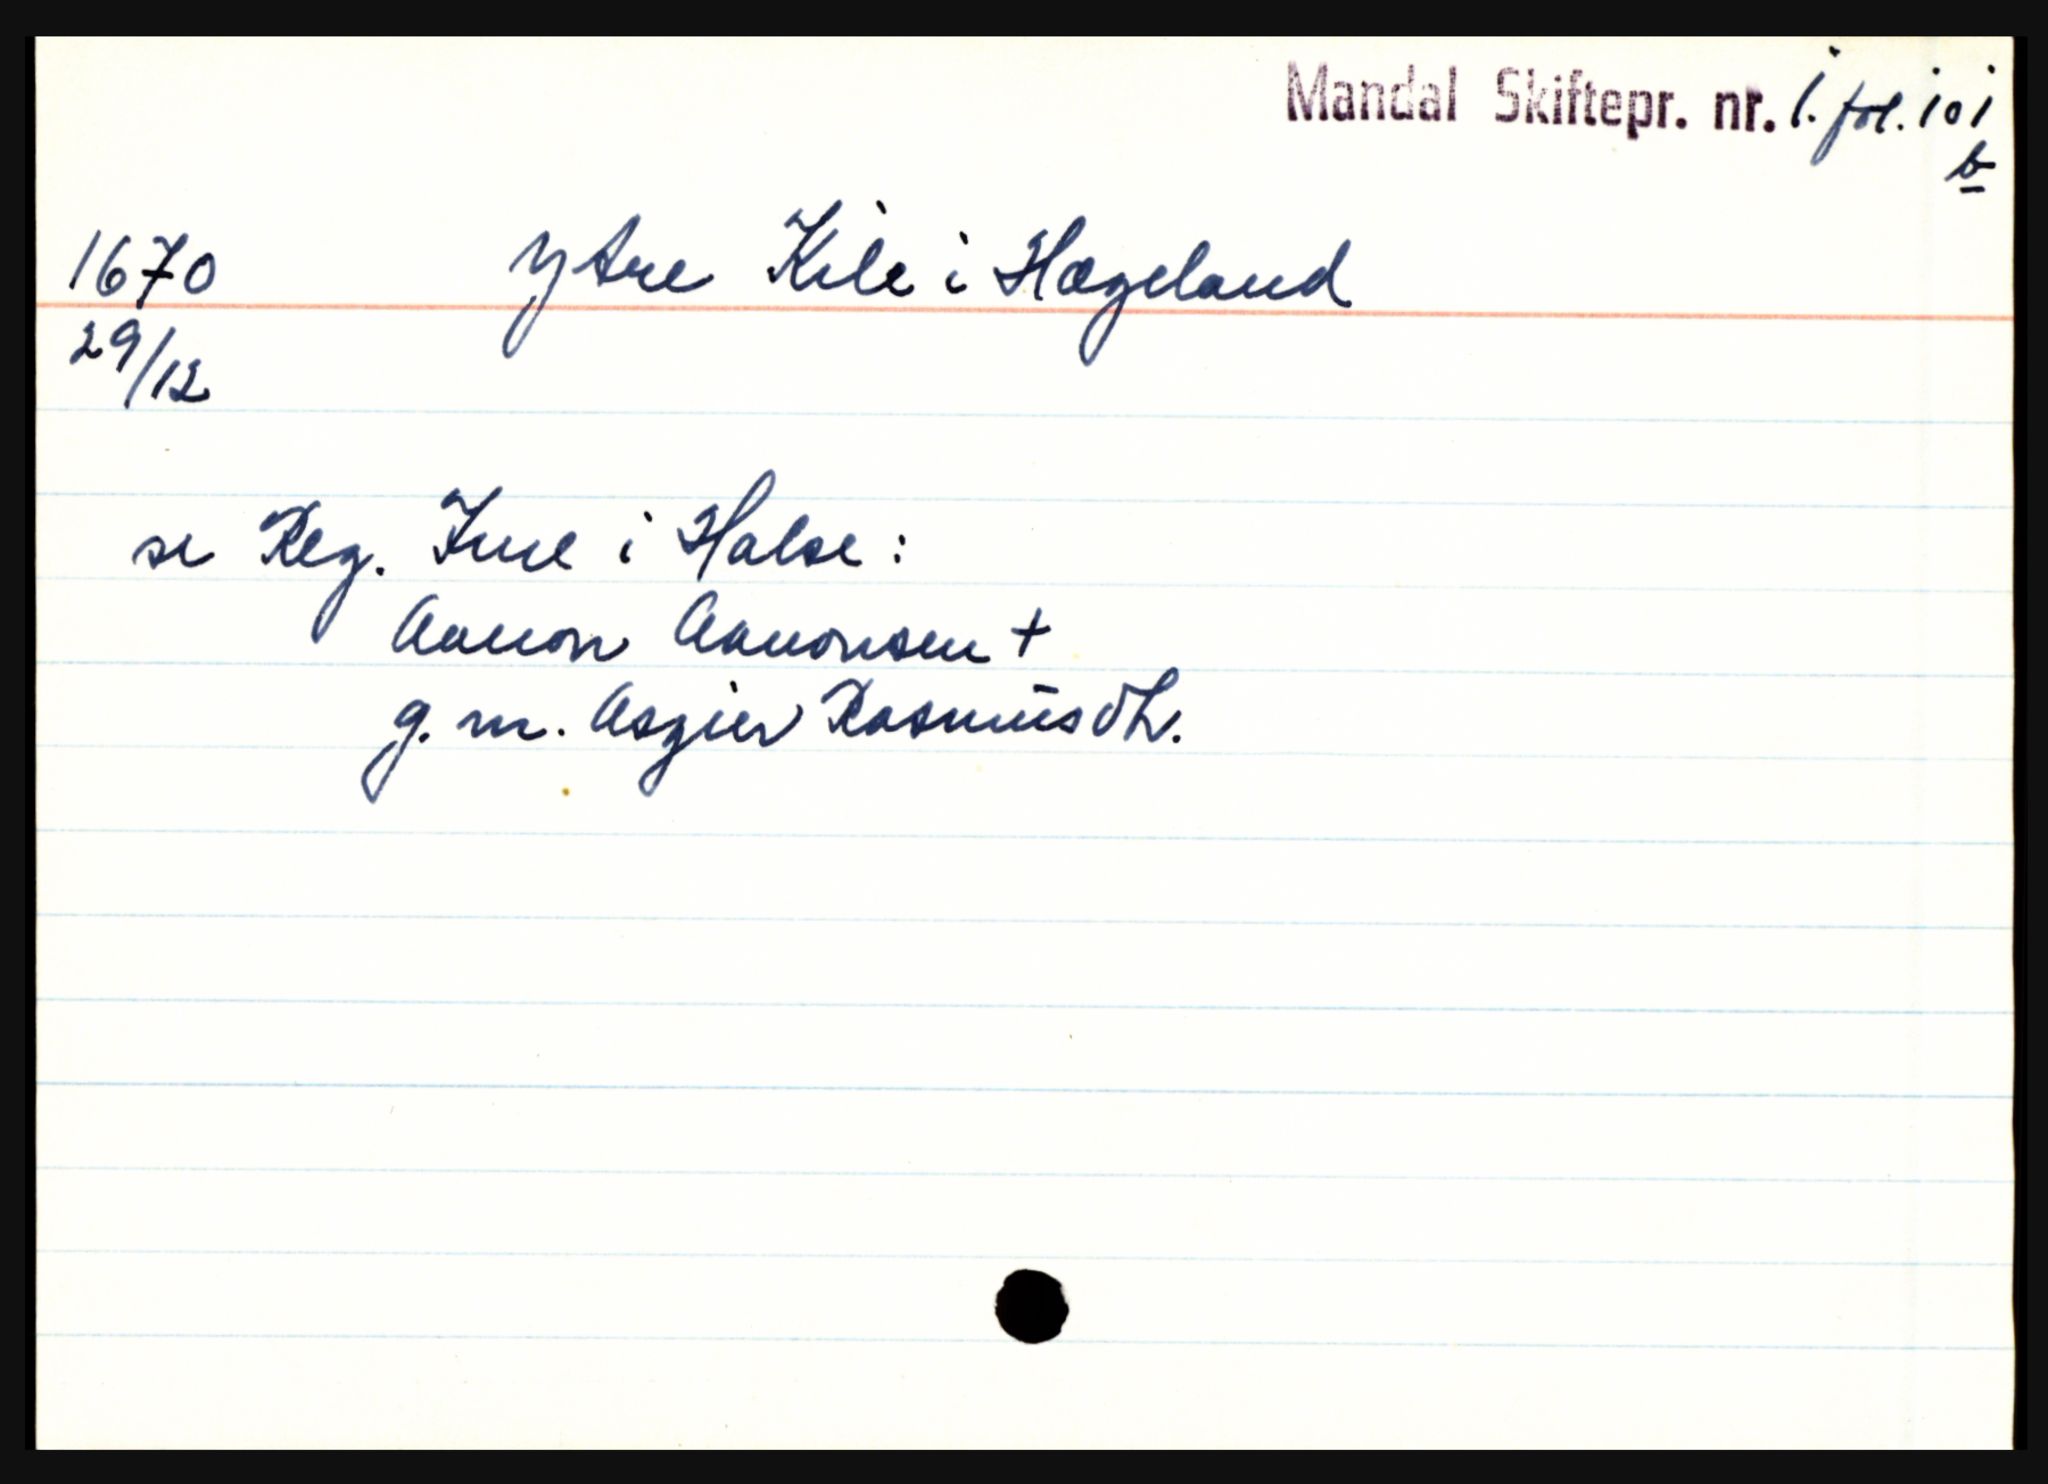 Mandal Skiftepr. nr. 1. fol. 101
b
1670 Ytre Kile i Hægeland
29/12
se Reg. Ime i Halse:
Aanon Aanonsen +
g. m. Asgier Rasmusdtr.